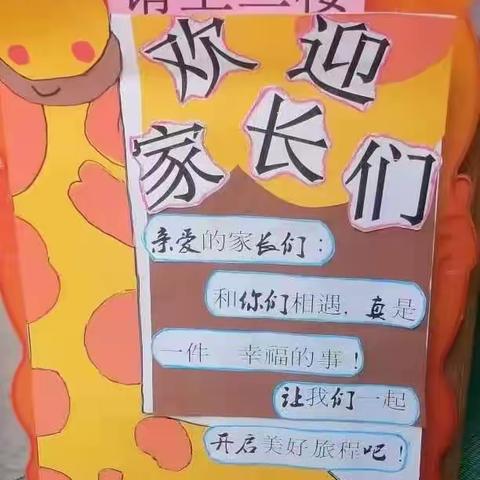 请上二楼
欢迎
家长们
亲爱的家长们：
和你们相遇，真是
一件 幸福的事！
让我们一起
开启美好旅程吧！